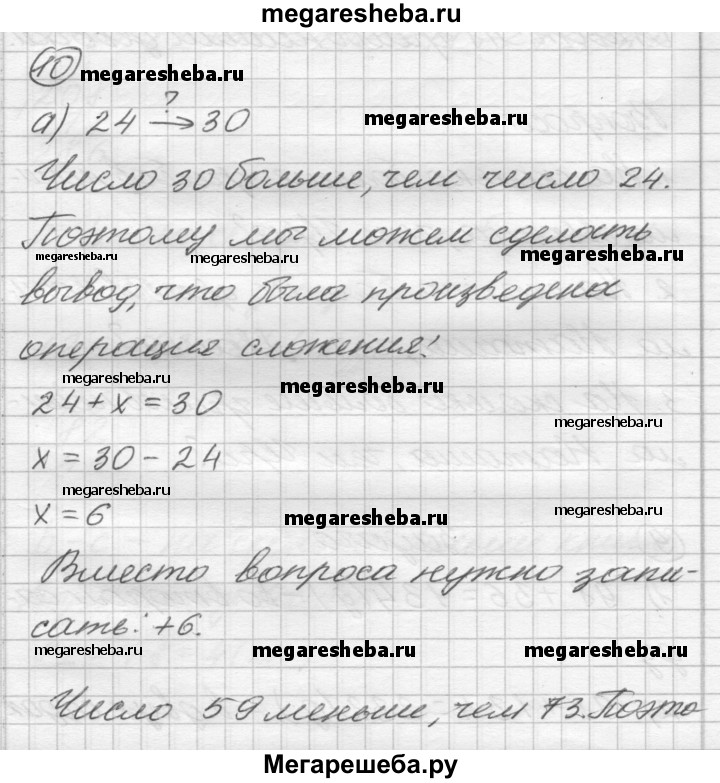 megaresheba.ru
10
megaresheba.ru
а) 24 ?→ 30
megaresheba.ru
Число 30 больше, чем число 24.
Поэтому мы можем сделать
megaresheba.ru megaresheba.ru megaresheba.ru
вывод, что была произведена
операция сложения!
megaresheba.ru megaresheba.ru
24 + x = 30
megaresheba.ru
x = 30 - 24
megaresheba.ru
x = 6
megaresheba.ru megaresheba.ru
Вместо вопроса нужно запи-
сать: +6.
megaresheba.ru megaresheba.ru megaresheba.ru
Число 59 меньше, чем 73. Поэто
Мегарешеба.ру